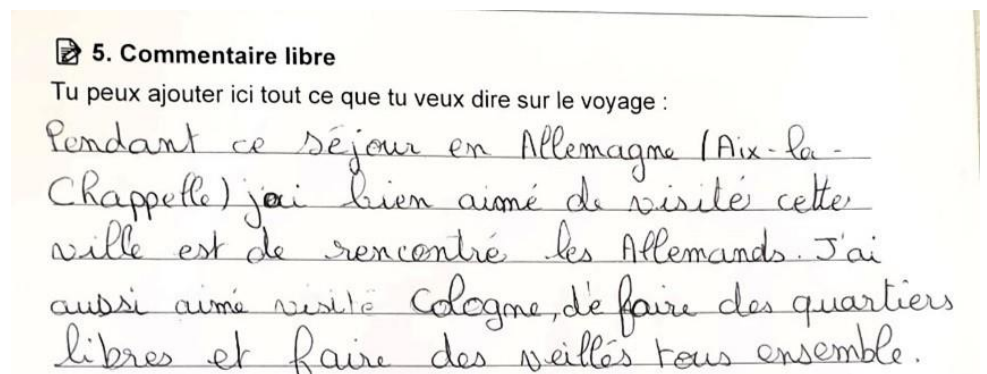 5. Commentaire libre
Tu peux ajouter ici tout ce que tu veux dire sur le voyage :
Pendant ce séjour en Allemagne (Aix-la-
Chappelle) j'ai bien aimé de visité cette
ville est de rencontré les Allemands. J'ai
aussi aimé visité Cologne, de faire des quartiers
libres et faire des veillés tous ensemble.